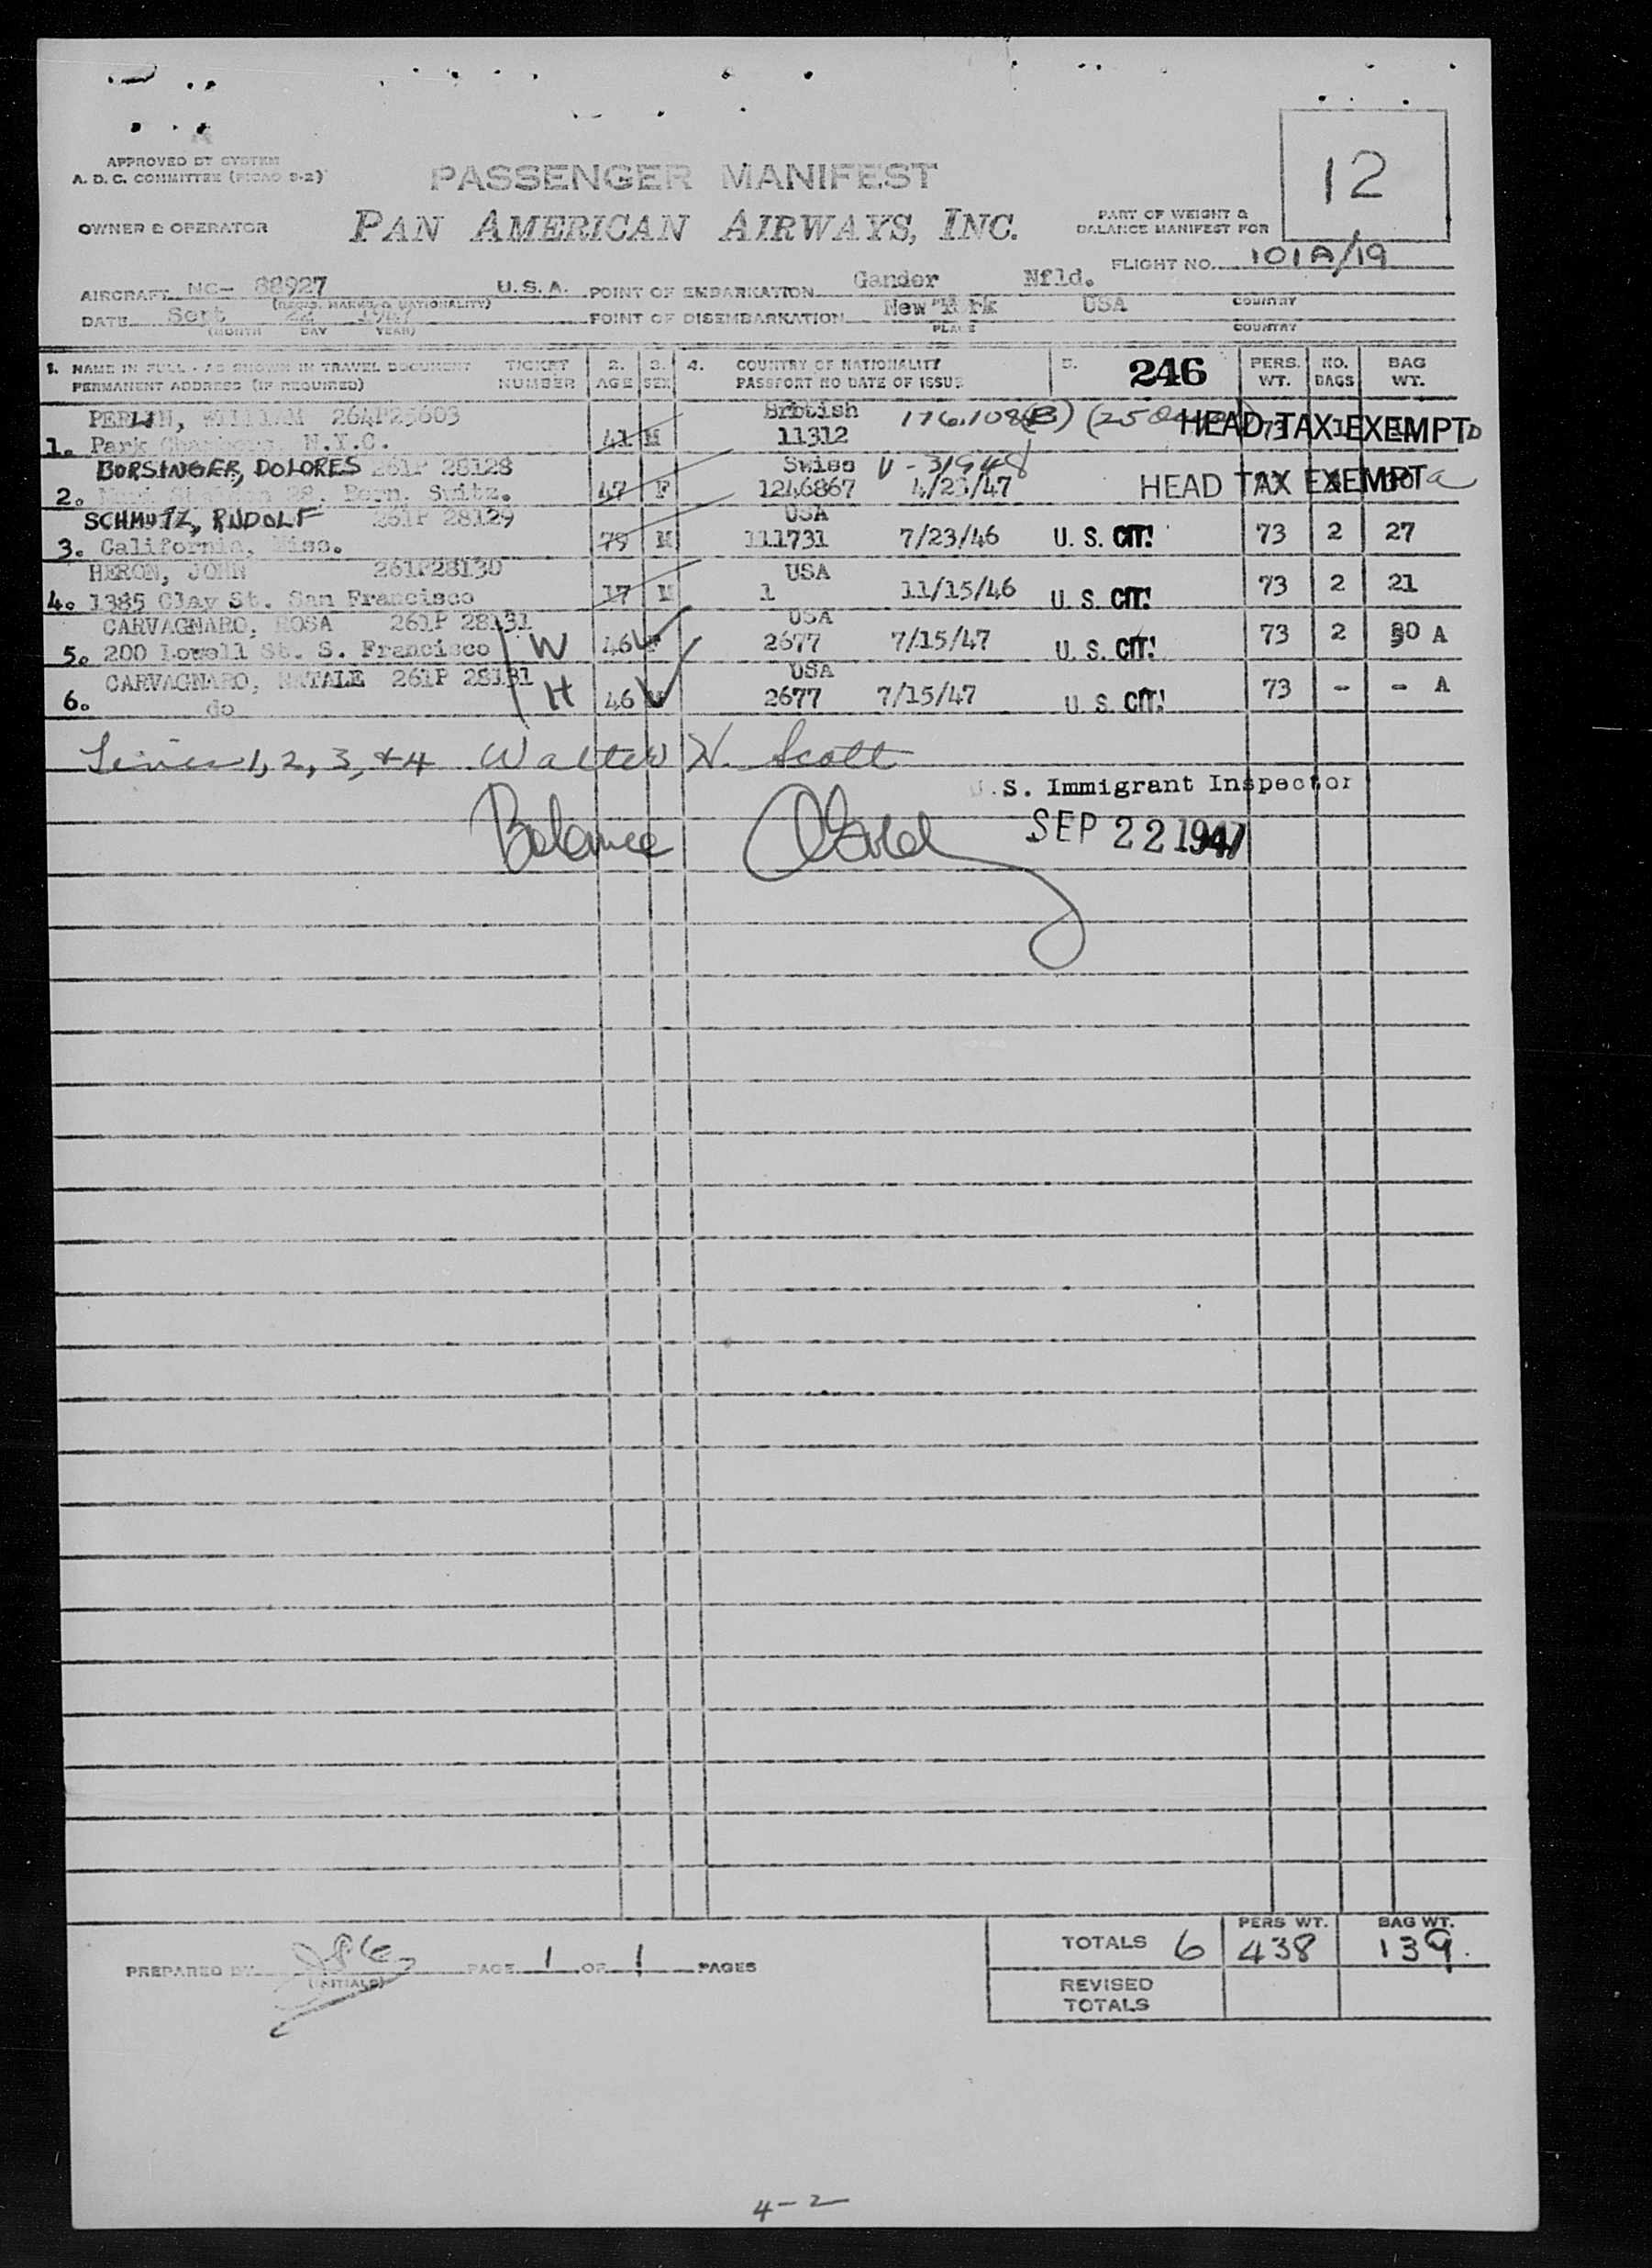 12
APPROVED BY SYSTEM
A. D. C. COMMITTEE (PICAO 9-2)
PASSENGER MANIFEST
OWNER & OPERATOR
PAN AMERICAN AIRWAYS, INC.
PART OF WEIGHT &
BALANCE MANIFEST FOR
FLIGHT NO. 101A/19
AIRCRAFT NC- 88927 U.S.A. POINT OF EMBARKATION Gander Nfld.
(REGIS. MARKS & NATIONALITY) COUNTRY
DATE Sept 22 1947 POINT OF DISEMBARKATION New York USA
(MONTH DAY YEAR) PLACE COUNTRY
1. NAME IN FULL - AS SHOWN IN TRAVEL DOCUMENT TICKET 2. 3. 4. COUNTRY OF NATIONALITY 5. 246 PERS. NO. BAG
PERMANENT ADDRESS (IF REQUIRED) NUMBER AGE SEX PASSPORT NO DATE OF ISSUE WT. BAGS WT.
PERLIN, WILLIAM 264P25603 176.108(B) HEAD TAX EXEMPT
1. Park Chambers N.Y.C. 41 M 11312 73
BORSINGER, DOLORES 261P 28128 Swiss V-31948
2. Bern. Switz. 47 F 1246867 4/23/47 HEAD TAX EXEMPT
SCHMUTZ, RUDOLF 261P 28129 USA
3. California, Miso. 79 M 111731 7/23/46 U. S. CIT. 73 2 27
HERON, JOHN 261P28130 USA
4. 1385 Clay St. San Francisco 17 M 1 11/15/46 U. S. CIT. 73 2 21
CARVAGNARO, ROSA 261P 28131 USA
5. 200 Lowell St. S. Francisco W 46 F 2677 7/15/47 U. S. CIT. 73 2 30 A
CARVAGNARO, NATALE 261P 28131 USA
6. do H 46 M 2677 7/15/47 U. S. CIT. 73 - - A
Lines 1, 2, 3, & 4 Walter N. Scott
U.S. Immigrant Inspector
Balance
SEP 22 1947
PREPARED BY (INITIALS) PAGE 1 OF 1 PAGES
PERS WT. BAG WT.
TOTALS 6 438 139.
REVISED
TOTALS
4-2